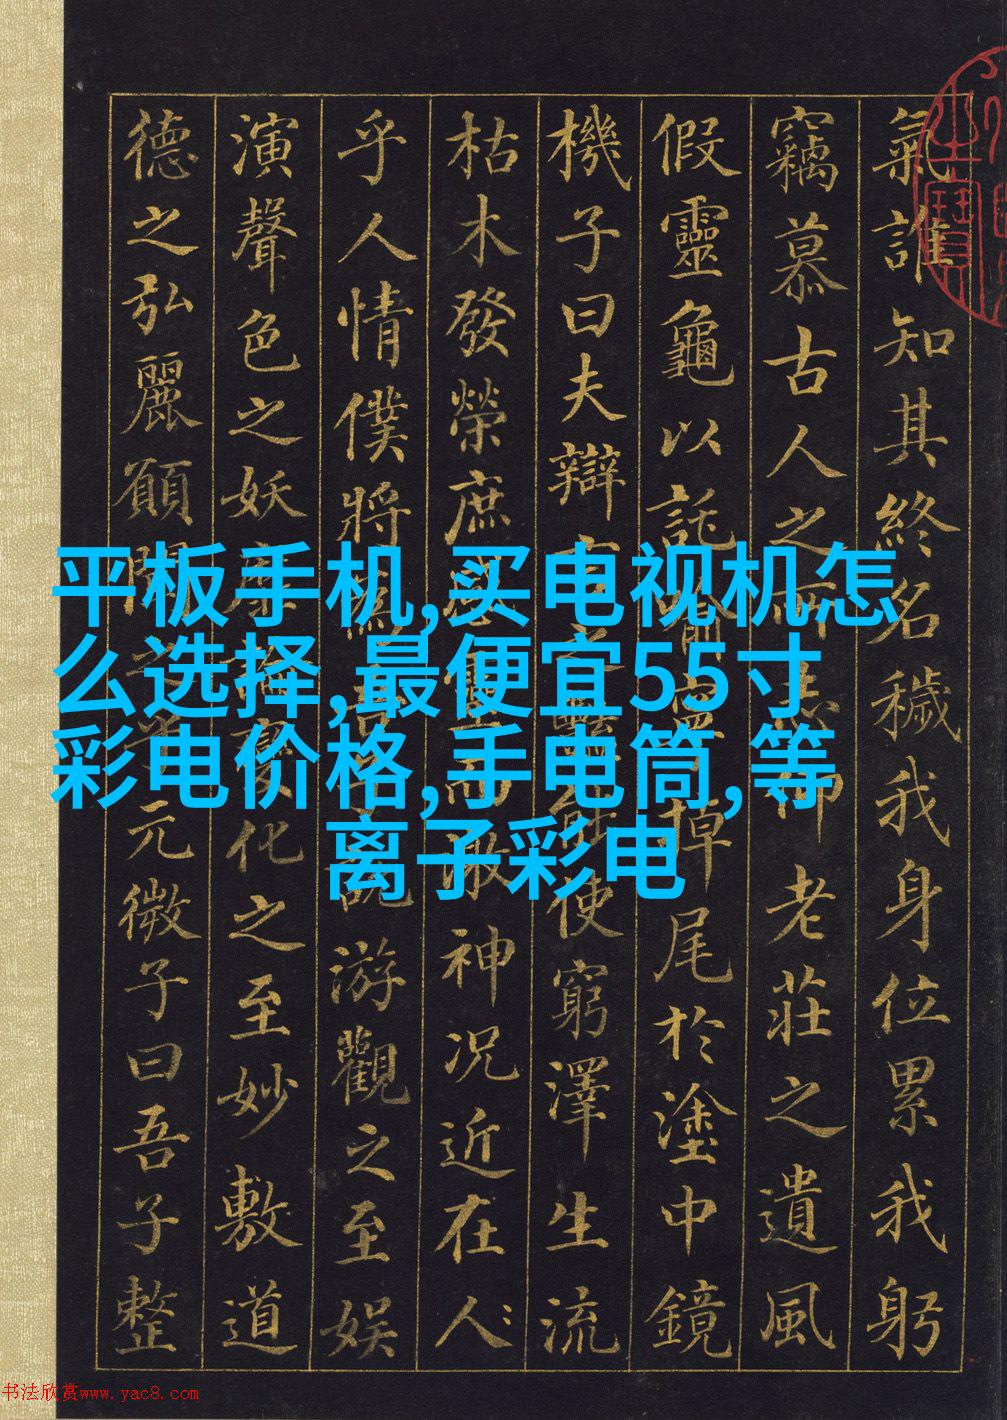 氣誰知其終名穢我身位累我躬
竊慕古人之所志仰老莊之遺風
假靈龜以託喻寧掉尾於塗中鏡
機子曰夫辯言之豔能使窮澤生流
枯木發榮庶感靈而激神況近在人
乎人情僕將為吾子說游觀之至娛
演聲色之妖靡論變化之至妙敷道
德之弘麗願聞之乎元微子曰吾子整
平板手机,买电视机怎
么选择,最便宜55寸
彩电价格,手电筒,等
离子彩电
书法欣赏www.yac8.com